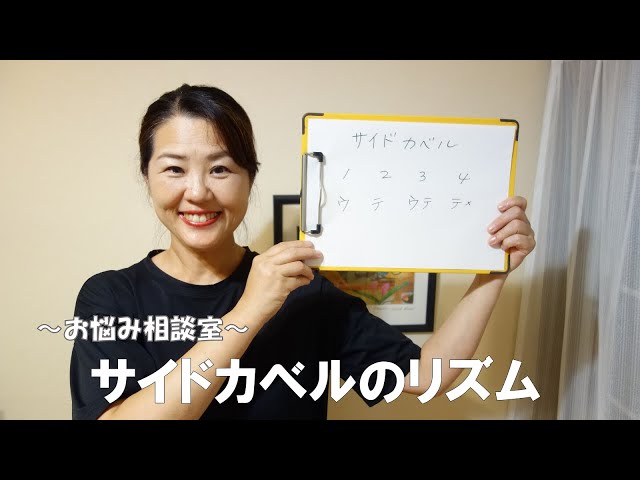 サイドカベル
1 2 3 4
ウ テ ウテ テメ
～お悩み相談室～
サイドカベルのリズム